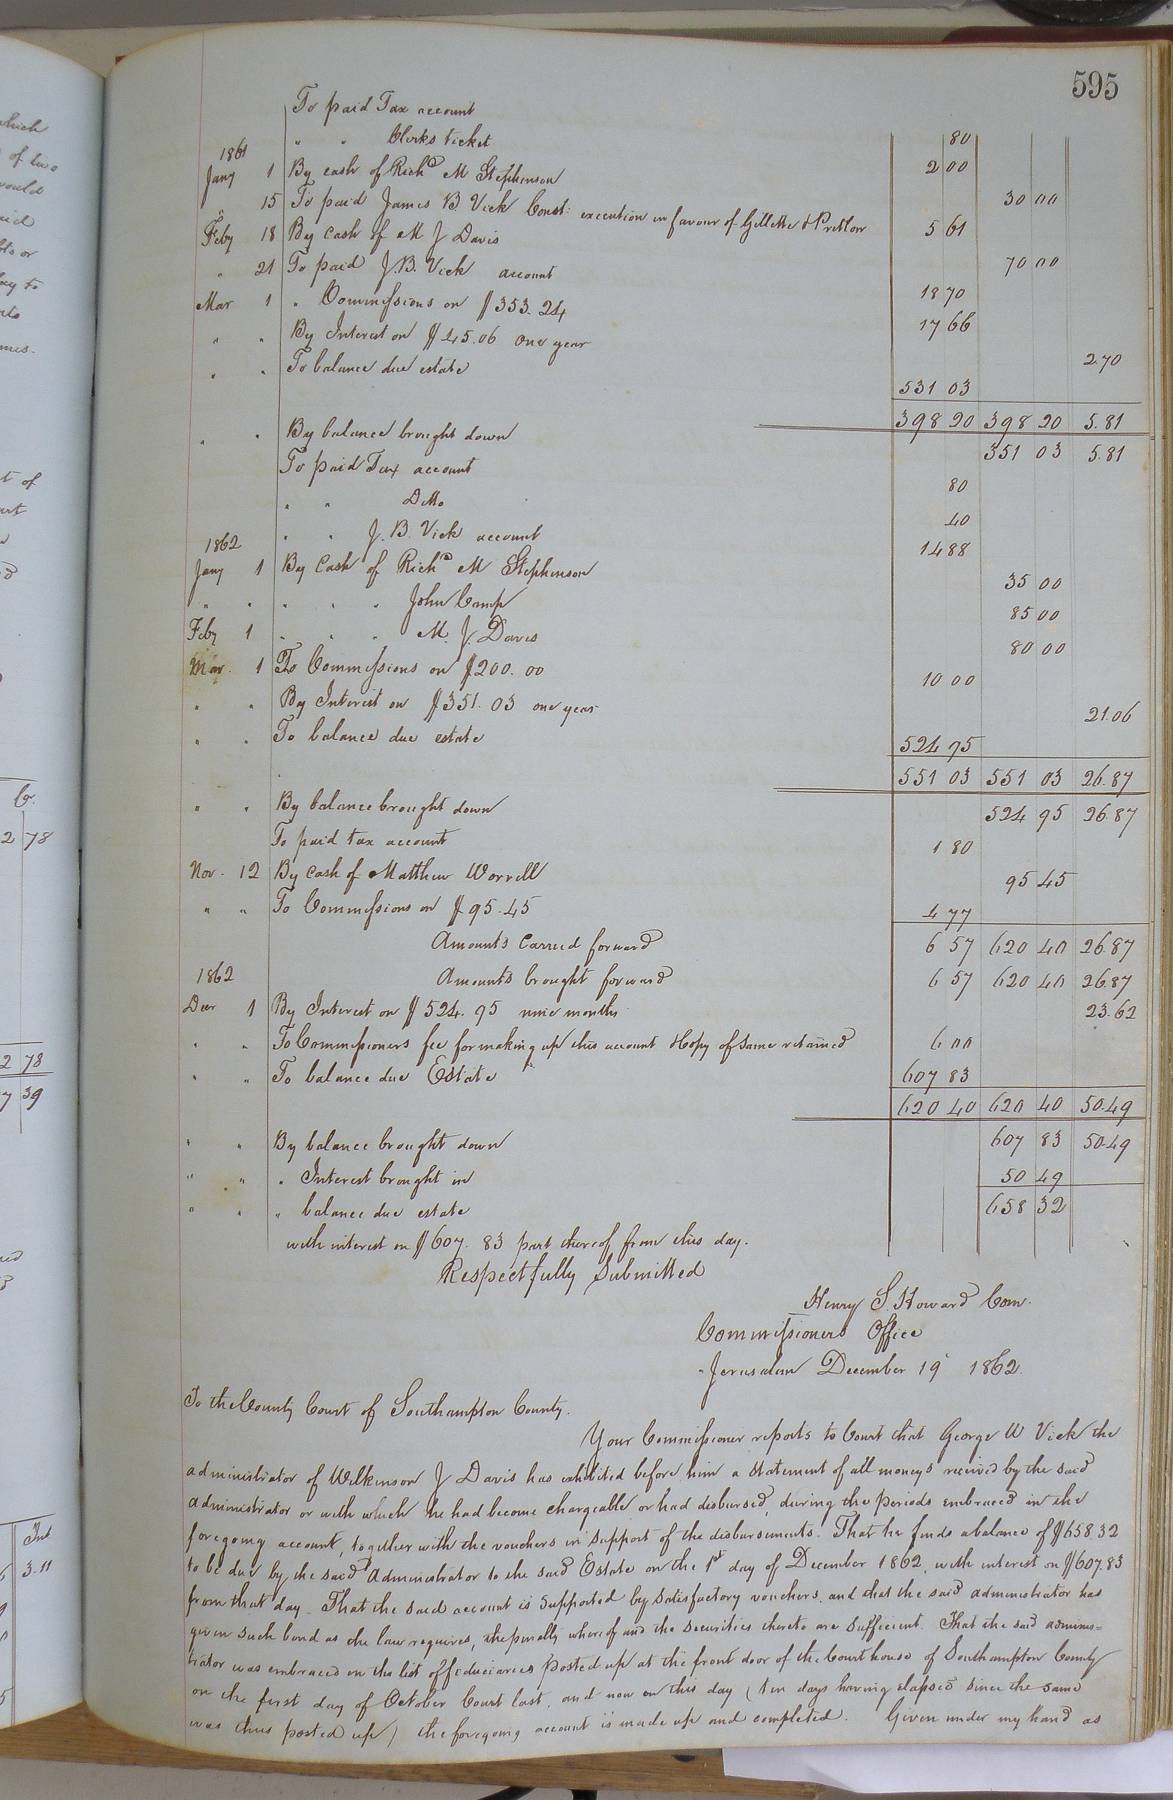 595
To paid Tax account 80
" " Clerks ticket 2 00
1861
Jany 1 By cash of Richd M Stephenson 30 00
" 15 To paid James B Vick Const: execution in favour of Gillette & Pretlow 5 61
Feby 18 By Cash of M J Davis 70 00
" 21 To paid J. B. Vick account 18 70
Mar 1 " Commissions on $353.24 17 66
" " By Interest on $45.06 one year 2.70
" " To balance due estate 531 03
398 20 398 20 5.81
" " By balance brought down 351 03 5.81
To paid Tax account 80
" " Ditto 40
" " J. B. Vick account 14 88
1862
Jany 1 By Cash of Richd M Stephenson 35 00
" " " " " John Camp 85 00
Feby 1 " " " M. J. Davis 80 00
Mar. 1 To Commissions on $200.00 10 00
" " By Interest on $351.03 one year 21.06
" " To balance due estate 524 95
551 03 551 03 26.87
" " By balance brought down 524 95 26.87
To paid tax account 1 80
Nov. 12 By Cash of Matthew Worrell 95 45
" " To Commissions on $95.45 4 77
Amounts Carried forward 6 57 620 40 26.87
1862 Amounts brought forward 6 57 620 40 26.87
Decr 1 By Interest on $524.95 nine months 23.62
" " To Commissioners fee for making up this account & Copy of same retained 6 00
" " To balance due Estate 607 83
620 40 620 40 50.49
" " By balance brought down 607 83 50.49
" " " Interest brought in 50 49
" " " balance due estate 658 32
with interest on $607.83 part thereof from this day.
Respectfully Submitted
Henry S. Howard Com.
Commissioners Office
Jerusalem December 19 1862.
To the County Court of Southampton County.
Your Commissioner reports to Court that George W Vick the
administrator of Wilkinson J Davis has exhibited before him a statement of all moneys received by the said
administrator or with which he had become chargeable or had disbursed, during the periods embraced in the
foregoing account, together with the vouchers in support of the disbursements. That he finds a balance of $658 32
to be due by the said Administrator to the said Estate on the 1st day of December 1862, with interest on $607.83
from that day. That the said account is supported by satisfactory vouchers, and that the said administrator has
given such bond as the law requires, the penalty whereof and the securities thereto are sufficient. That the said adminis=
trator was embraced in the list of fiduciaries posted up at the front door of the Court house of Southampton County
on the first day of October Court last, and now on this day (ten days having elapsed since the same
was thus posted up) the foregoing account is made up and completed. Given under my hand as